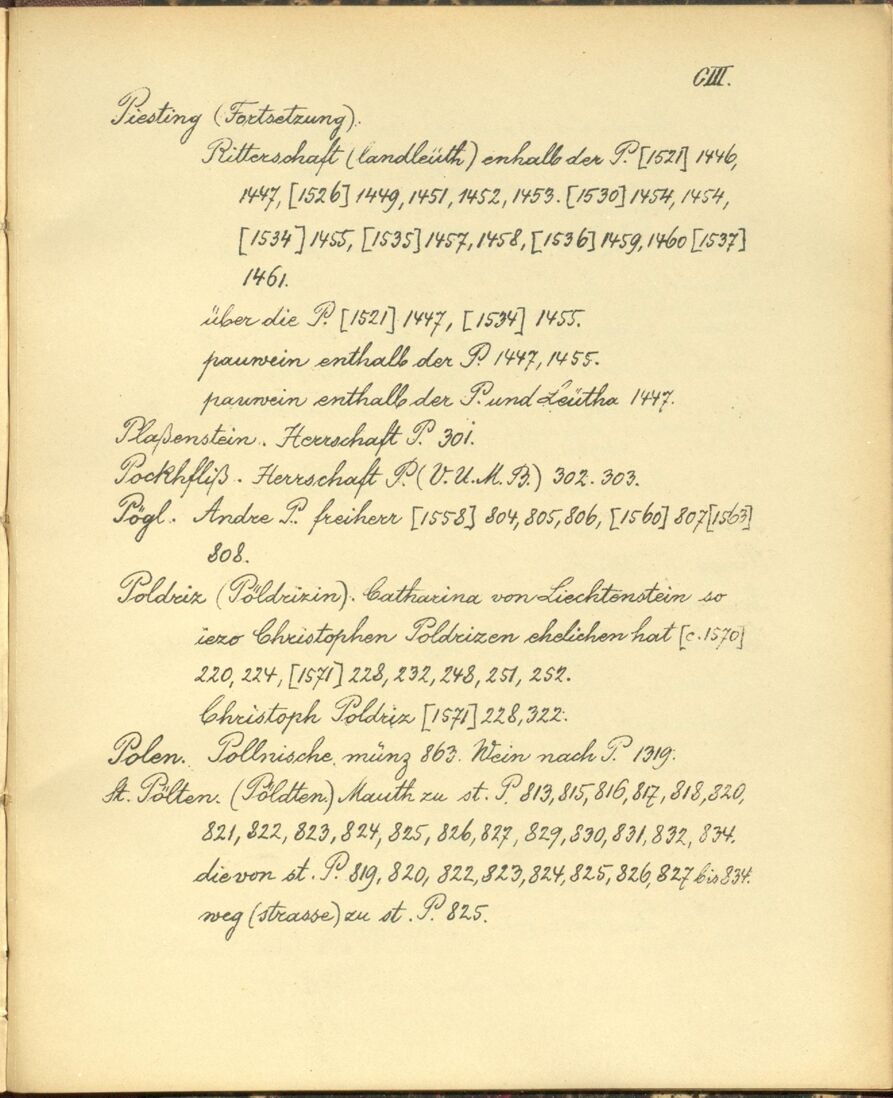 CIII.
Piesting (Fortsetzung).
Ritterschaft (landleüth) enhalb der P. [1521] 1446,
1447, [1526] 1449, 1451, 1452, 1453. [1530] 1454, 1454,
[1534] 1455, [1535] 1457, 1458, [1536] 1459, 1460 [1537]
1461.
über die P. [1521] 1447, [1534] 1455.
pauwein enthalb der P. 1447, 1455.
pauwein enthalb der P. und Leütha 1447.
Plaßenstein. Herrschaft P. 301.
Pockhfliß. Herrschaft P. (V. U. M. B.) 302. 303.
Pögl. Andre P. freiherr [1558] 804, 805, 806, [1560] 807 [1563]
808.
Poldriz (Pöldrizin). Catharina von Liechtenstein so
iezo Christophen Poldrizen ehelichen hat [c. 1570]
220, 224, [1571] 228, 232, 248, 251, 252.
Christoph Poldriz [1571] 228, 322.
Polen. Pollnische münz 863. Wein nach P. 1319.
St. Pölten. (Pöldten.) Mauth zu st. P. 813, 815, 816, 817, 818, 820,
821, 822, 823, 824, 825, 826, 827, 829, 830, 831, 832, 834.
die von st. P. 819, 820, 822, 823, 824, 825, 826, 827 bis 834.
weg (strasse) zu st. P. 825.